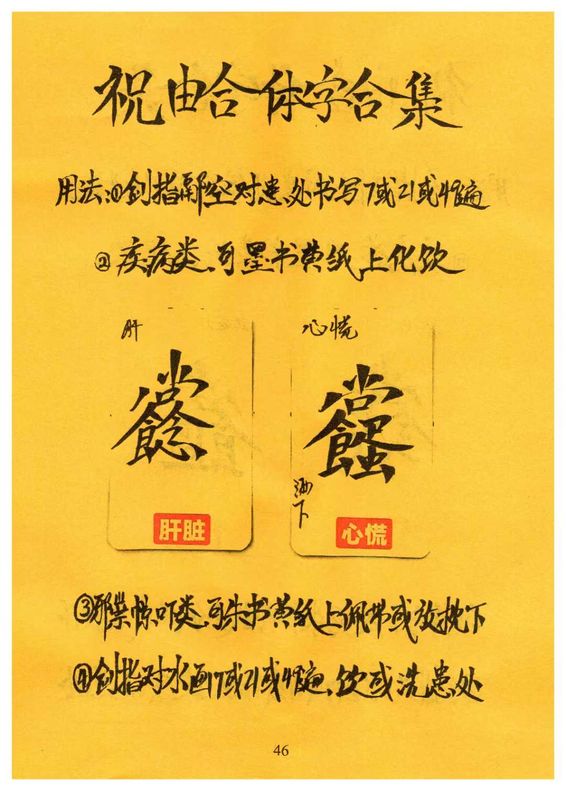 祝由合体字合集
用法:①剑指隔空对患处书写7或21或49遍
②疾病类,可墨书黄纸上化饮
肝
心慌
酒下
肝脏
心慌
③邪祟惊吓类,可朱书黄纸上佩带或放枕下
④剑指对水画7或21或49遍,饮或洗患处
46